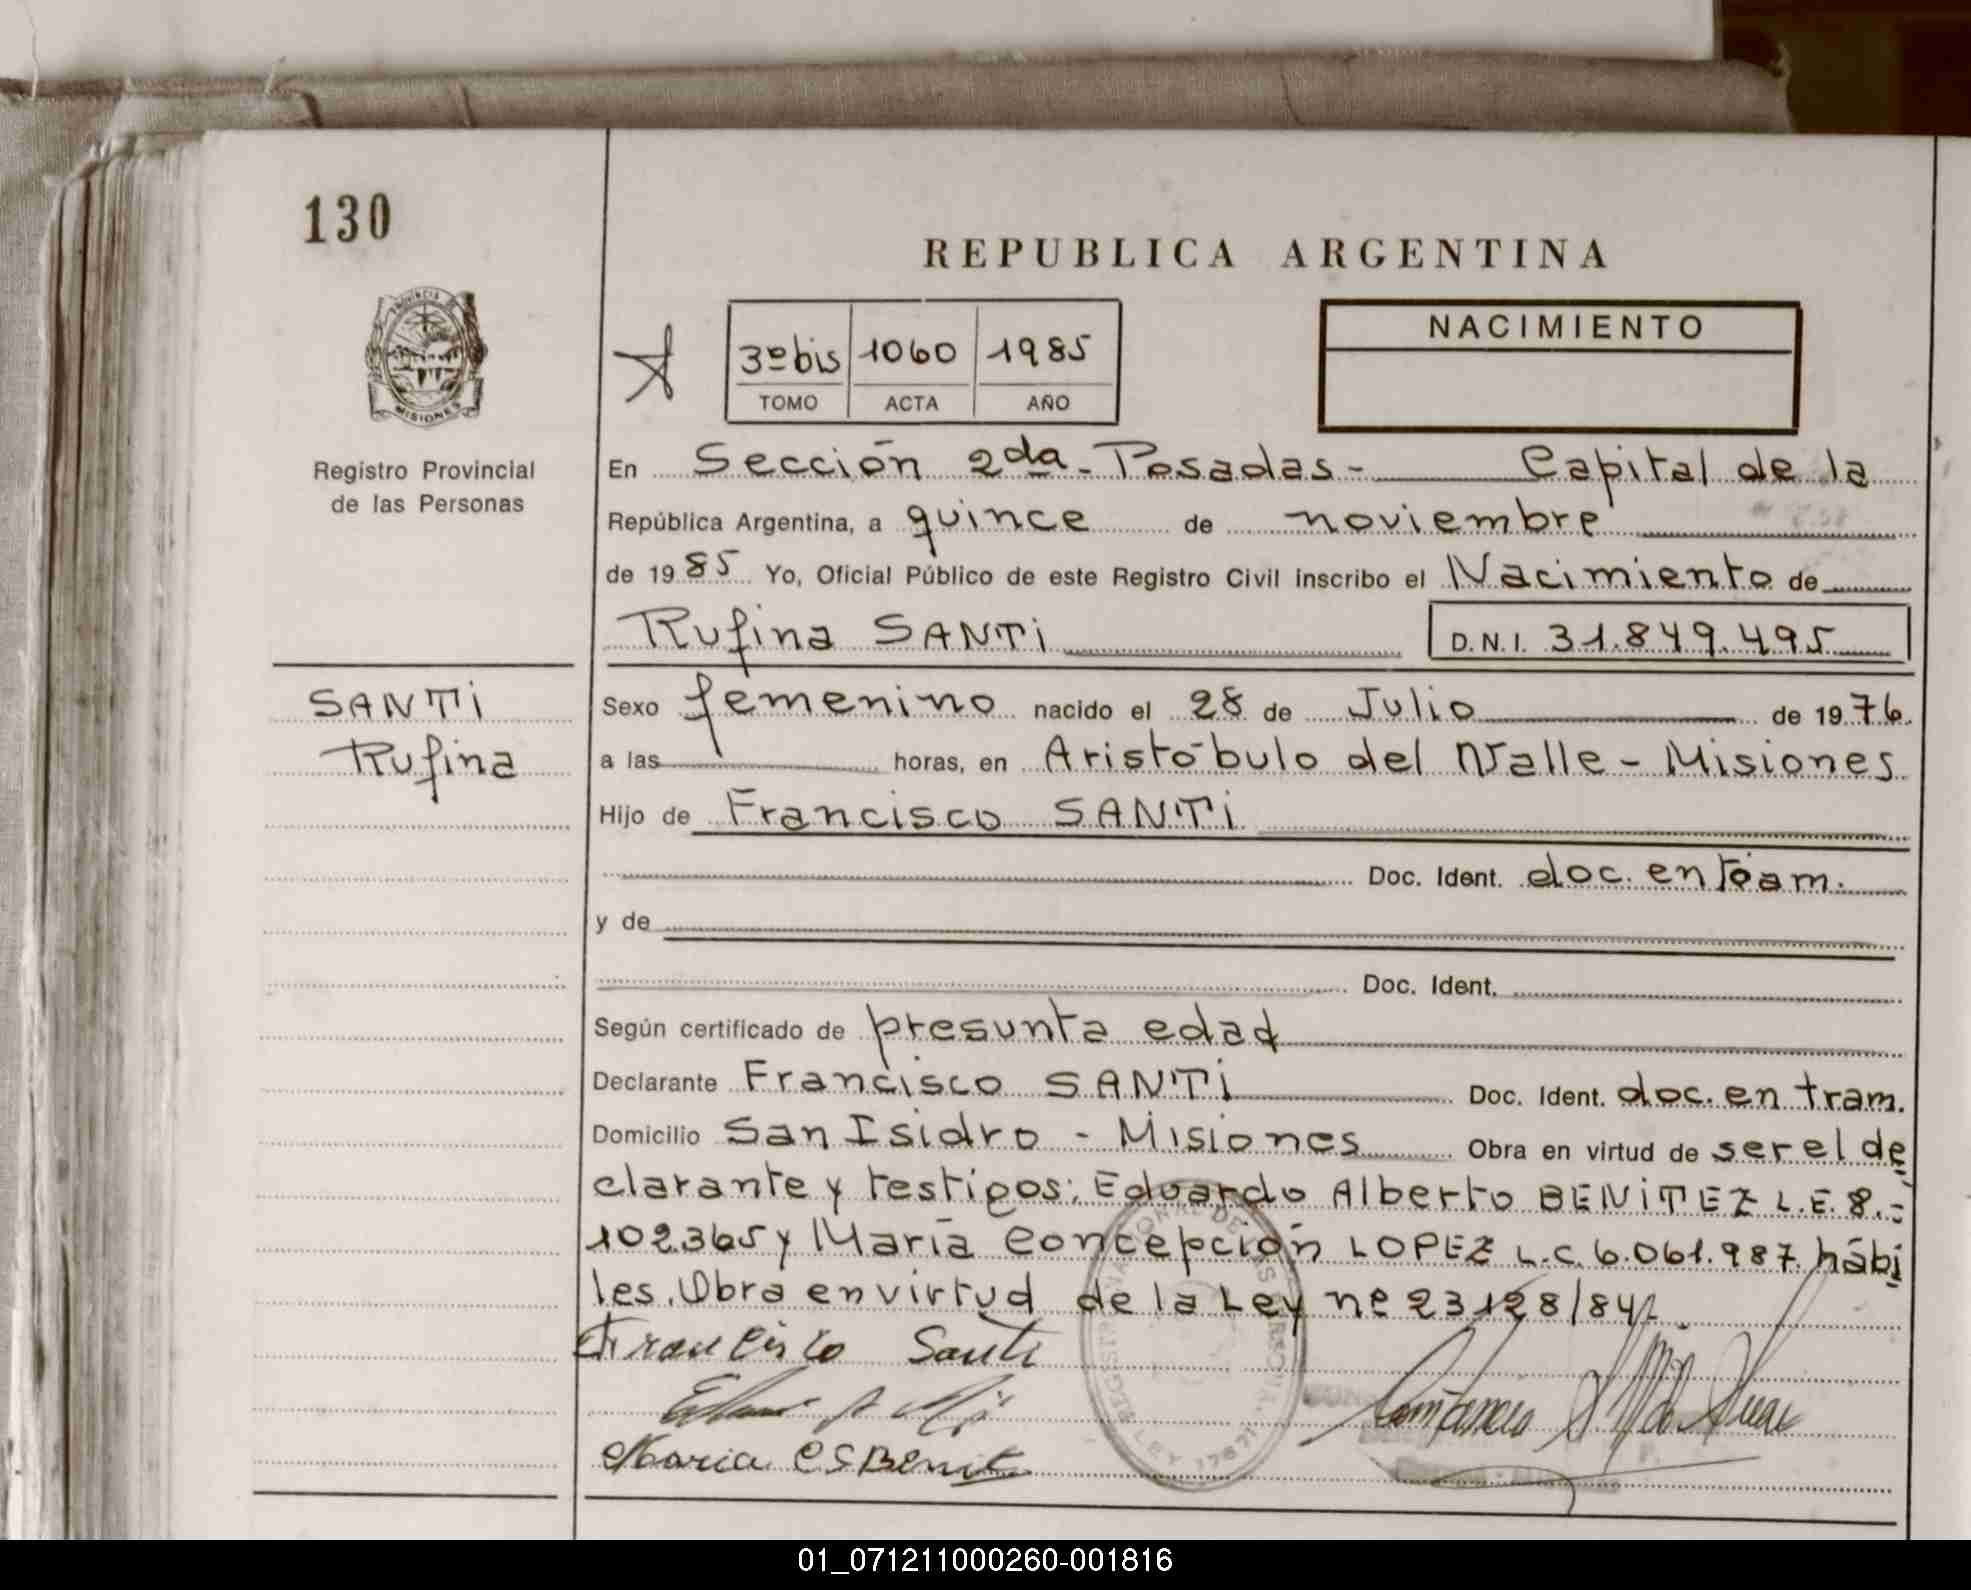 130
REPUBLICA ARGENTINA
PROVINCIA DE
MISIONES
NACIMIENTO
3º bis 1060 1985
TOMO ACTA AÑO
Registro Provincial
de las Personas
En Sección 2da - Posadas - Capital de la
República Argentina, a quince de noviembre
de 1985 Yo, Oficial Público de este Registro Civil inscribo el Nacimiento de
Rufina SANTi
D.N.I. 31.849.495
SANTi
Rufina
Sexo femenino nacido el 28 de Julio de 1976.
a las horas, en Aristóbulo del Valle - Misiones
Hijo de Francisco SANTi
Doc. Ident. doc. en
y de
Doc. Ident.
Según certificado de presunta edad
Declarante Francisco SANTi Doc. Ident. doc. en tram.
Domicilio San Isidro - Misiones Obra en virtud de ser el de
clarante y testigos: Eduardo Alberto BENiTEZ L.E. 8.=
102365 y María Concepción LOPEZ L.C. 6.061.987. hábi
les. Obra en virtud de la Ley nº 23128/84.
Francisco Santi
Maria
LEY
01_071211000260-001816